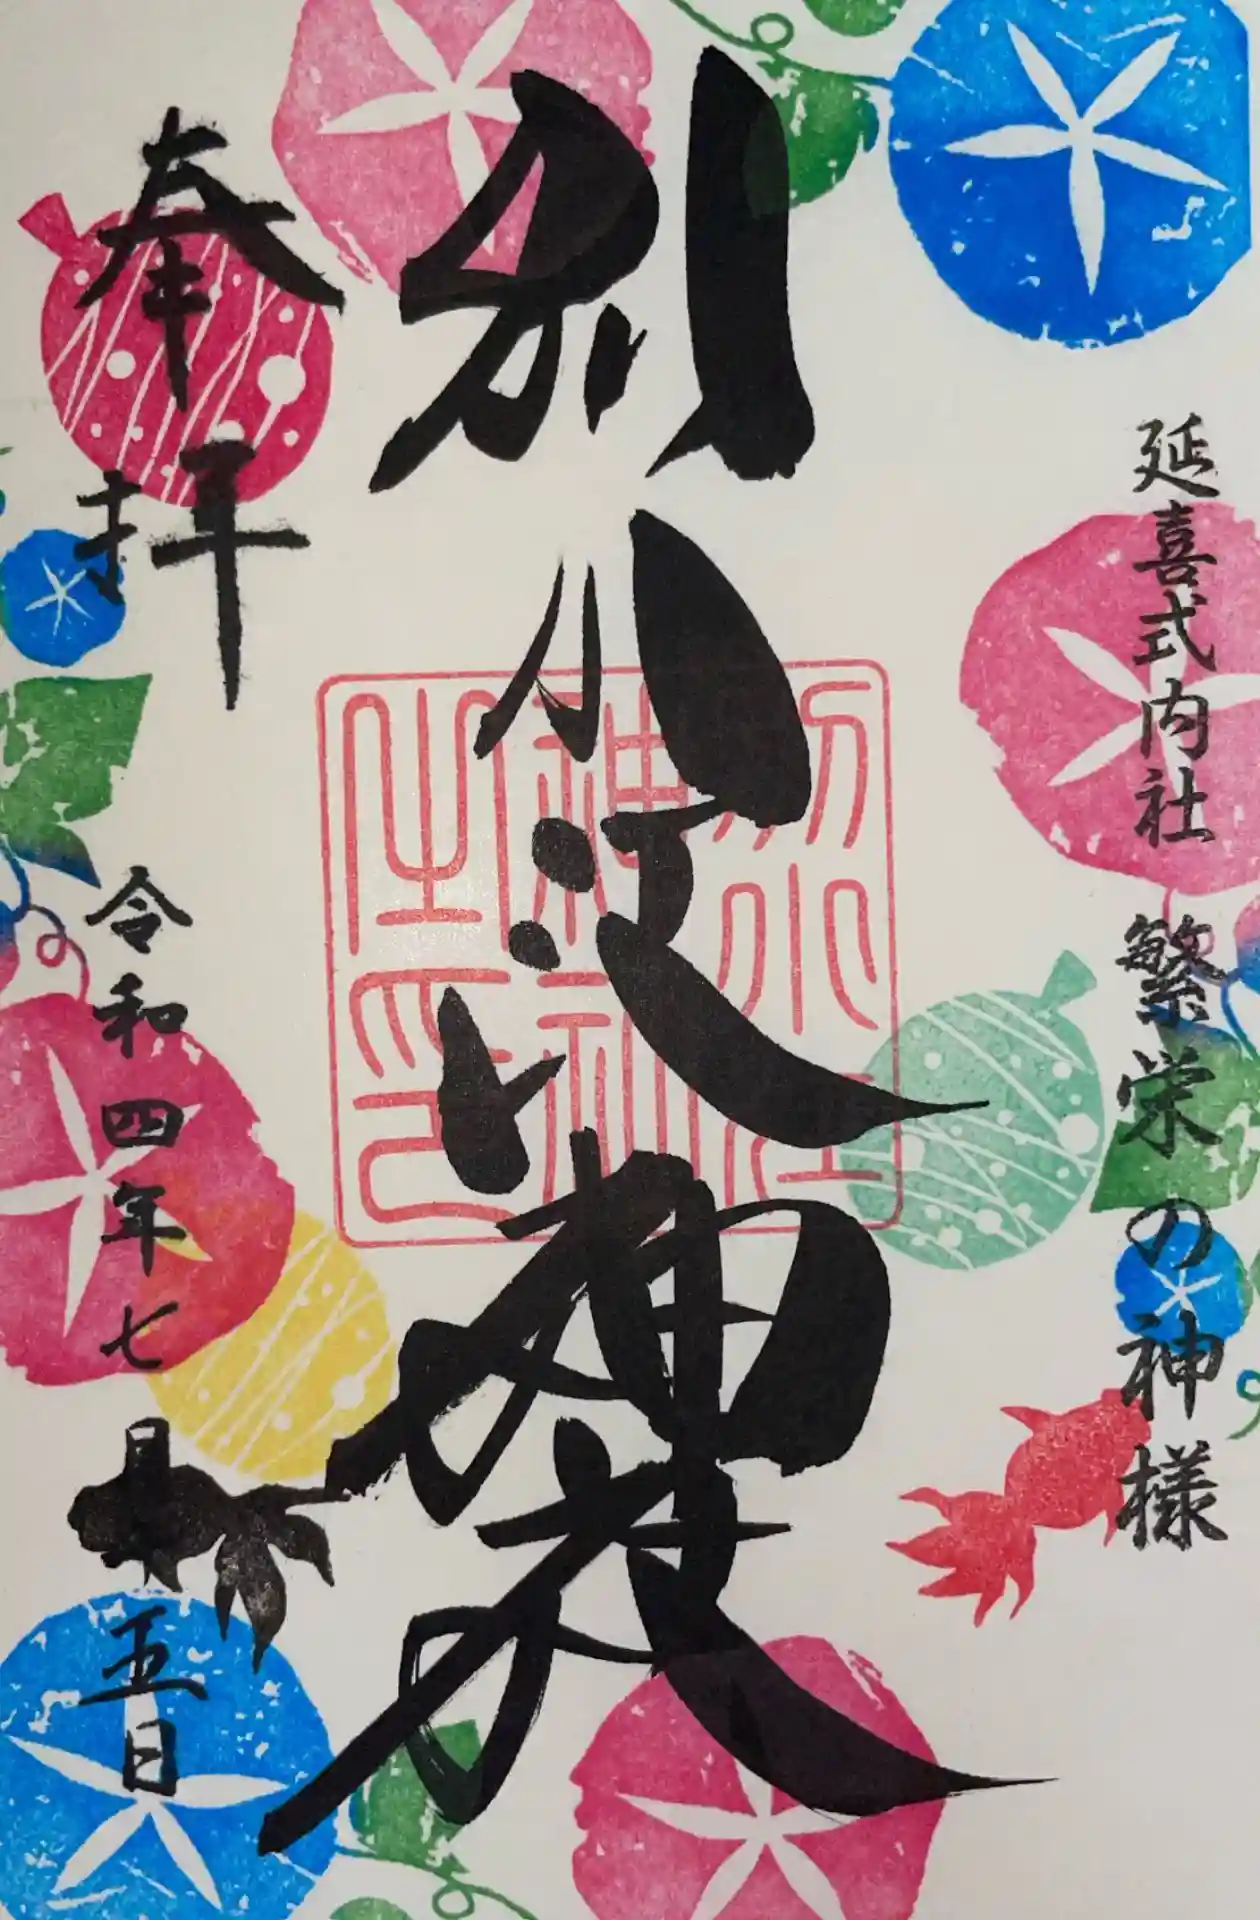 延喜式内社 繁栄の神様
別小江神社
別小江
神社
之印
奉拝
令和四年七月十五日